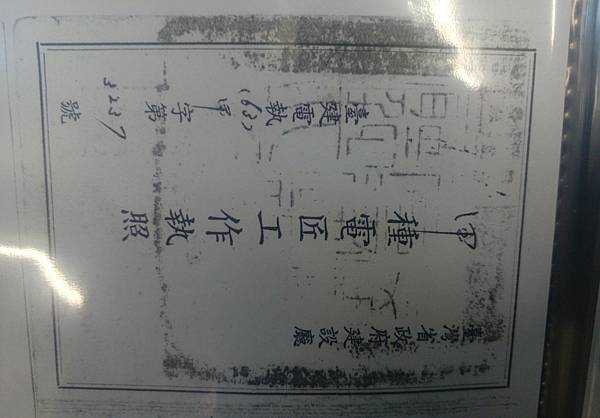 臺建電執(63)甲字第
號
甲種電匠工作執照
臺灣省政府建設廳